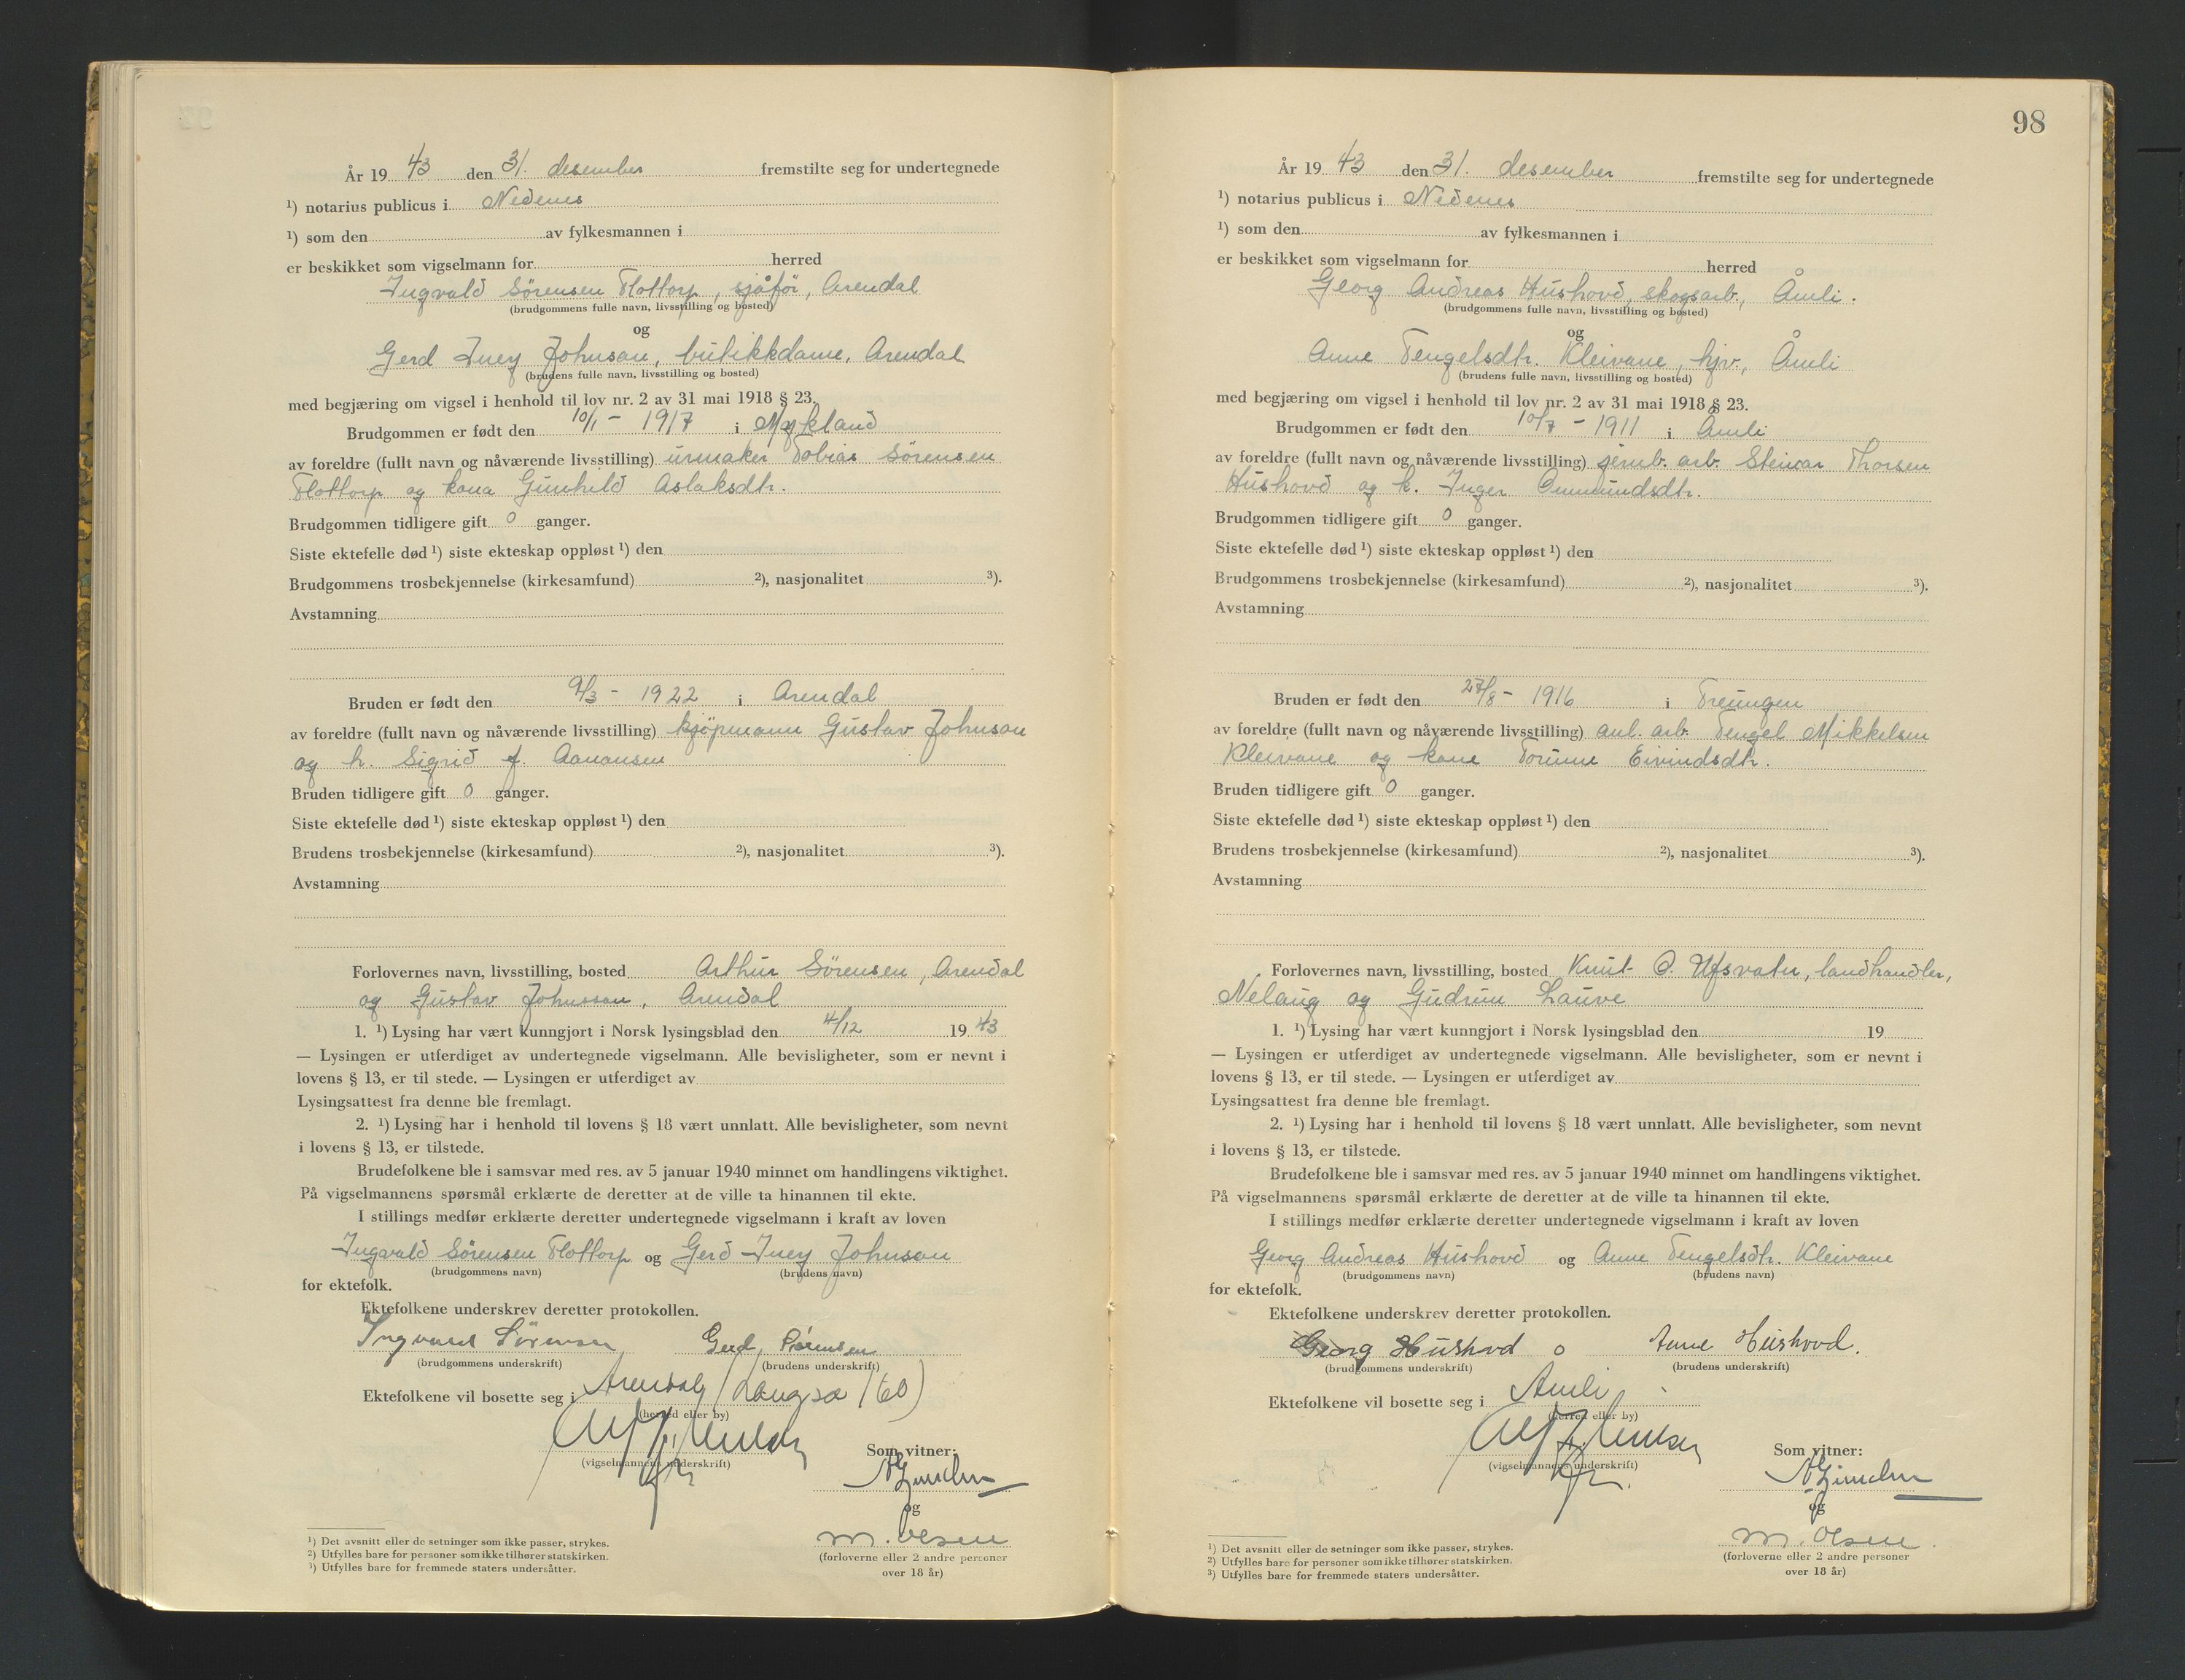 År 19 43 den 31. desember fremstilte seg for undertegnede
¹) notarius publicus i Nedenes
¹) som den av fylkesmannen i
er beskikket som vigselmann for herred
Ingvald Sørensen Flottorp, sjåfør, Arendal
(brudgommens fulle navn, livsstilling og bosted)
og
Gerd Iney Johnson, butikkdame, Arendal
(brudens fulle navn, livsstilling og bosted)
med begjæring om vigsel i henhold til lov nr. 2 av 31 mai 1918 § 23.
Brudgommen er født den 10/1 - 1917 i Mykland
av foreldre (fullt navn og nåværende livsstilling) urmaker Tobias Sörensen
Flottorp og kona Gunhild Aslaksdtr.
Brudgommen tidligere gift 0 ganger.
Siste ektefelle død ¹) siste ekteskap oppløst ¹) den
Brudgommens trosbekjennelse (kirkesamfund) ²), nasjonalitet ³).
Avstamning
Bruden er født den 9/3 - 1922 i Arendal
av foreldre (fullt navn og nåværende livsstilling) kjøpmann Gustav Johnson
og h. Sigrid f. Aanonsen
Bruden tidligere gift 0 ganger.
Siste ektefelle død ¹) siste ekteskap oppløst ¹) den
Brudens trosbekjennelse (kirkesamfund) ²), nasjonalitet ³).
Avstamning
Forlovernes navn, livsstilling, bosted Arthur Sörensen, Arendal
og Gustav Johnson, Arendal
1. ¹) Lysing har vært kunngjort i Norsk lysingsblad den 4/12 19 43
— Lysingen er utferdiget av undertegnede vigselmann. Alle bevisligheter, som er nevnt i
lovens § 13, er til stede. — Lysingen er utferdiget av
Lysingsattest fra denne ble fremlagt.
2. ¹) Lysing har i henhold til lovens § 18 vært unnlatt. Alle bevisligheter, som nevnt
i lovens § 13, er tilstede.
Brudefolkene ble i samsvar med res. av 5 januar 1940 minnet om handlingens viktighet.
På vigselmannens spørsmål erklærte de deretter at de ville ta hinannen til ekte.
I stillings medfør erklærte deretter undertegnede vigselmann i kraft av loven
Ingvald Sörensen Flottorp og Gerd Iney Johnson
(brudgommens navn) (brudens navn)
for ektefolk.
Ektefolkene underskrev deretter protokollen.
Ingvald Sörensen Gerd Sörensen
(brudgommens underskrift) (brudens underskrift)
Ektefolkene vil bosette seg i Arendal (Langsæ 60)
(herred eller by)
(vigselmannens underskrift)
Som vitner:
og
M. Olsen
(forloverne eller 2 andre personer
over 18 år)
¹) Det avsnitt eller de setninger som ikke passer, strykes.
²) Utfylles bare for personer som ikke tilhører statskirken.
³) Utfylles bare for fremmede staters undersåtter.
98
År 19 43 den 31. desember fremstilte seg for undertegnede
¹) notarius publicus i Nedenes
¹) som den av fylkesmannen i
er beskikket som vigselmann for herred
Georg Andreas Hushovd, skogsarb., Åmli.
(brudgommens fulle navn, livsstilling og bosted)
og
Anne Tengelsdtr. Kleivane, hjv., Åmli
(brudens fulle navn, livsstilling og bosted)
med begjæring om vigsel i henhold til lov nr. 2 av 31 mai 1918 § 23.
Brudgommen er født den 10/7 - 1911 i Åmli
av foreldre (fullt navn og nåværende livsstilling) jernb. arb. Steinar Thorsen
Hushovd og h. Inger Ommundsdtr.
Brudgommen tidligere gift 0 ganger.
Siste ektefelle død ¹) siste ekteskap oppløst ¹) den
Brudgommens trosbekjennelse (kirkesamfund) ²), nasjonalitet ³).
Avstamning
Bruden er født den 27/8 - 1916 i Treungen
av foreldre (fullt navn og nåværende livsstilling) anl. arb. Tengel Mikkelsen
Kleivane og kone Torunn Eivindsdtr.
Bruden tidligere gift 0 ganger.
Siste ektefelle død ¹) siste ekteskap oppløst ¹) den
Brudens trosbekjennelse (kirkesamfund) ²), nasjonalitet ³).
Avstamning
Forlovernes navn, livsstilling, bosted Knut O. Ufsvatn, landhandler,
Nelaug og Gudrun Lauve
1. ¹) Lysing har vært kunngjort i Norsk lysingsblad den 19
— Lysingen er utferdiget av undertegnede vigselmann. Alle bevisligheter, som er nevnt i
lovens § 13, er til stede. — Lysingen er utferdiget av
Lysingsattest fra denne ble fremlagt.
2. ¹) Lysing har i henhold til lovens § 18 vært unnlatt. Alle bevisligheter, som nevnt
i lovens § 13, er tilstede.
Brudefolkene ble i samsvar med res. av 5 januar 1940 minnet om handlingens viktighet.
På vigselmannens spørsmål erklærte de deretter at de ville ta hinannen til ekte.
I stillings medfør erklærte deretter undertegnede vigselmann i kraft av loven
Georg Andreas Hushovd og Anne Tengelsdtr. Kleivane
(brudgommens navn) (brudens navn)
for ektefolk.
Ektefolkene underskrev deretter protokollen.
Georg Hushovd o Anne Hushovd.
(brudgommens underskrift) (brudens underskrift)
Ektefolkene vil bosette seg i Åmli
(herred eller by)
(vigselmannens underskrift)
Som vitner:
og
M. Olsen
(forloverne eller 2 andre personer
over 18 år)
¹) Det avsnitt eller de setninger som ikke passer, strykes.
²) Utfylles bare for personer som ikke tilhører statskirken.
³) Utfylles bare for fremmede staters undersåtter.